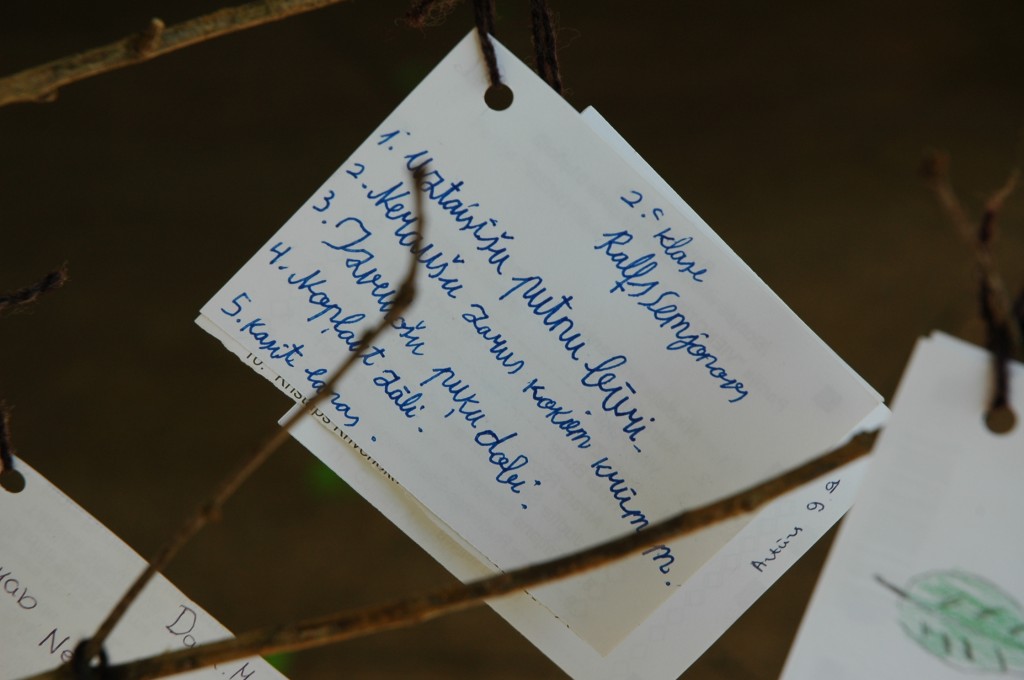 2.c klase
Ralfs Semjonovs
1. Uztaisīšu putnu būri.
2. Neraušu zarus kokam krūmam.
3. Izveidošu puķu dobi.
4. Nopļaut zāli.
5. Kasīt lapas.
Artūrs 9.